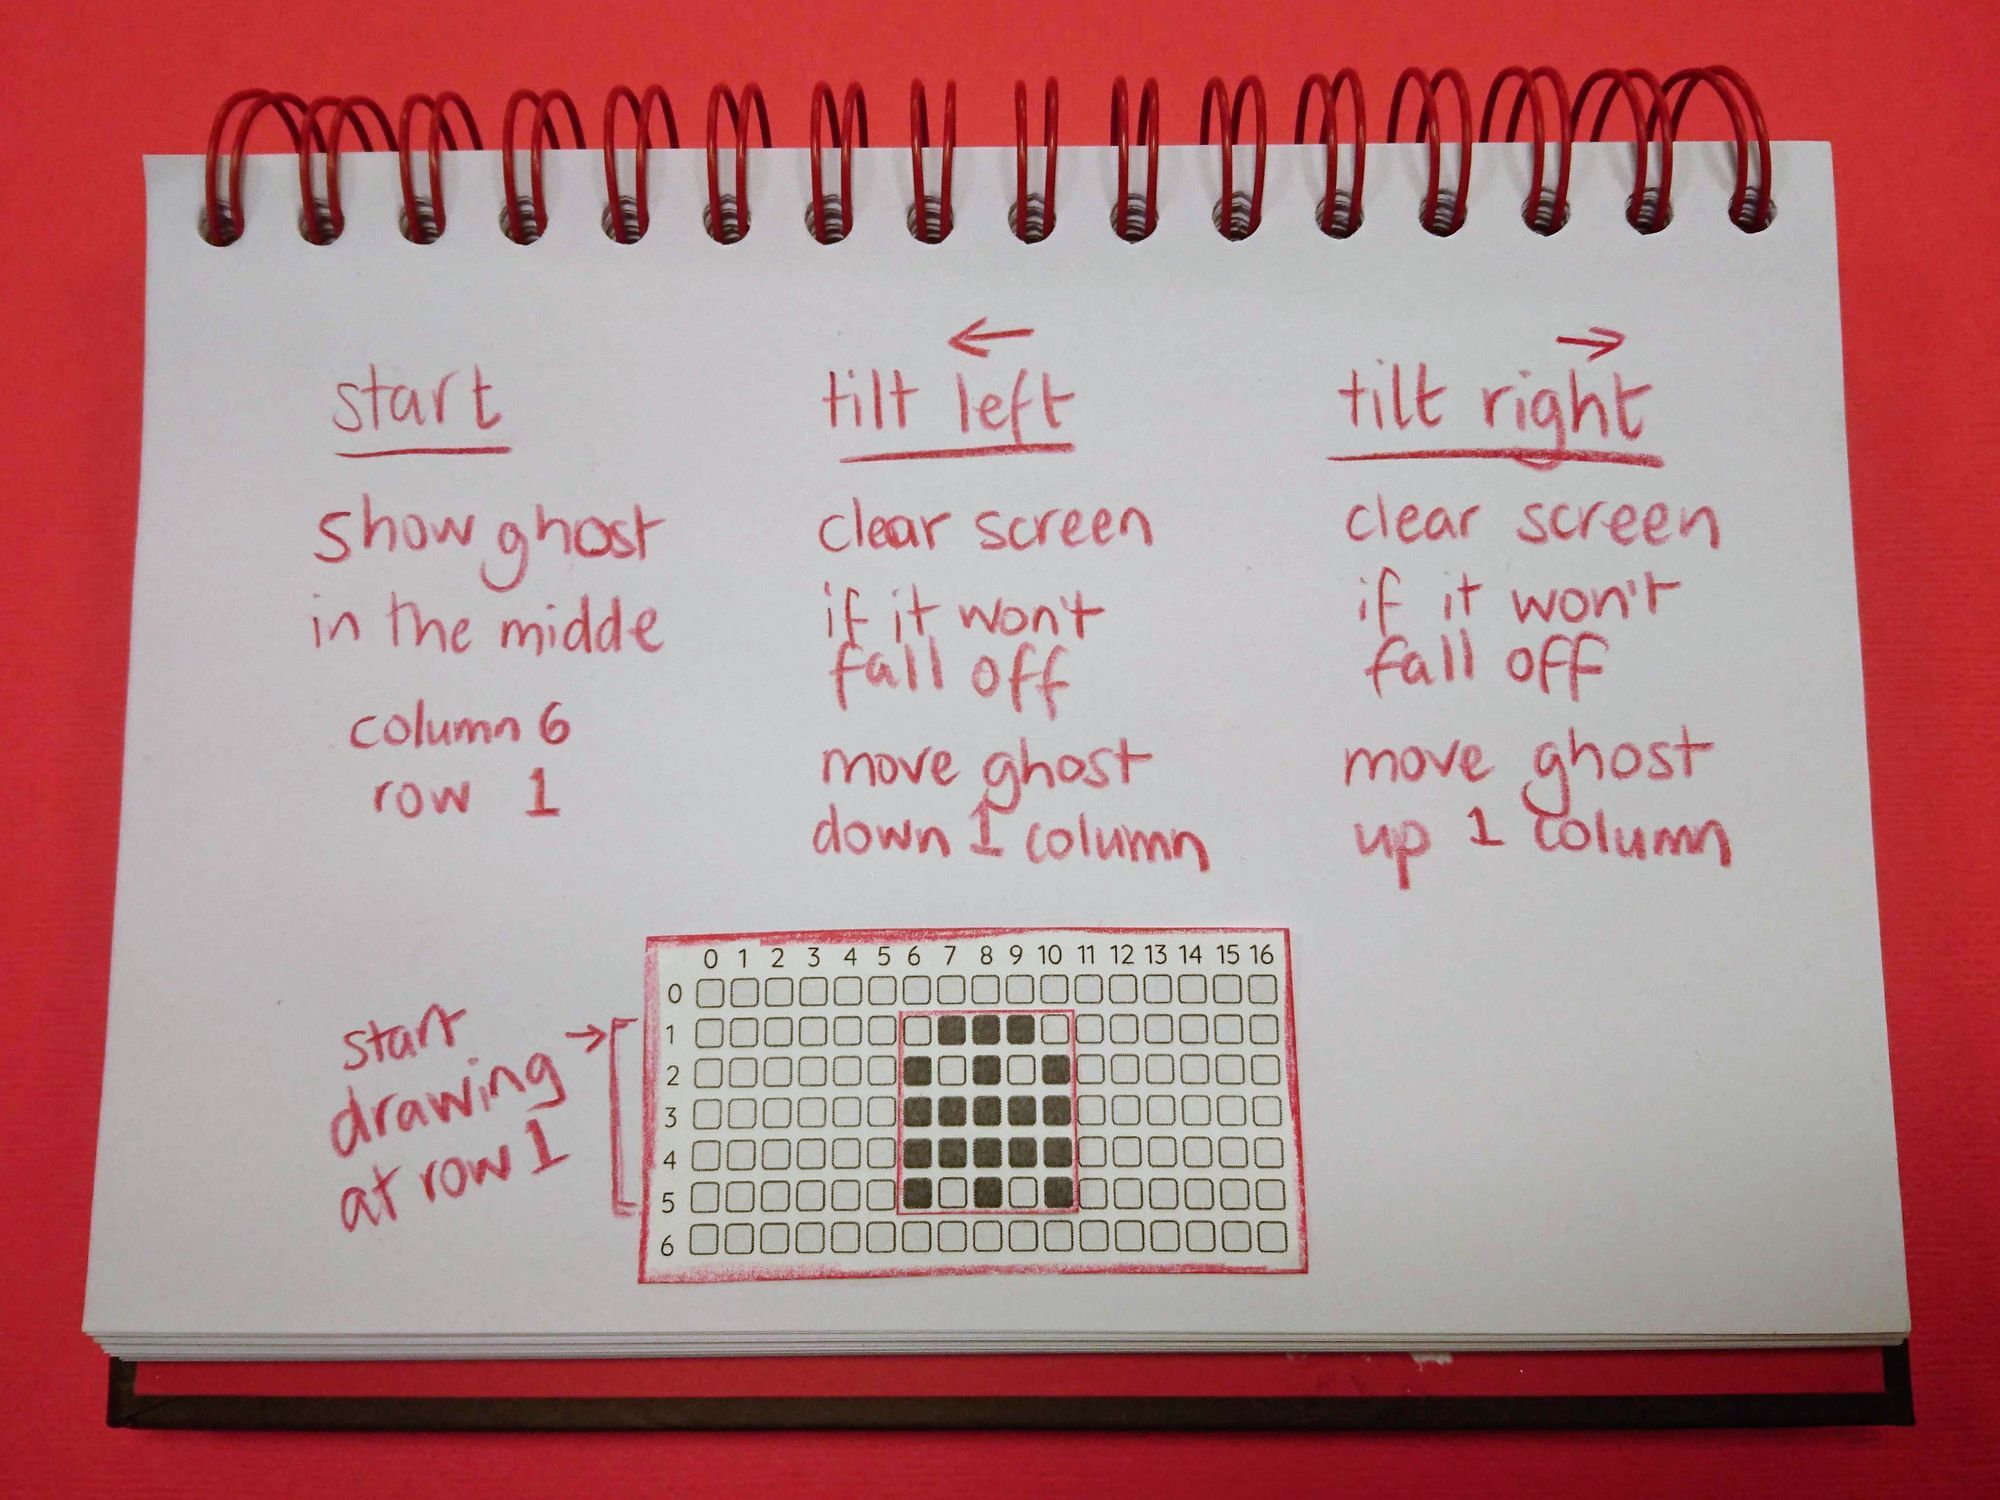 start
show ghost
in the midde
column 6
row 1
←
tilt left
clear screen
if it won't
fall off
move ghost
down 1 column
→
tilt right
clear screen
if it won't
fall off
move ghost
up 1 column
start →
drawing
at row 1
0 1 2 3 4 5 6 7 8 9 10 11 12 13 14 15 16
0
1
2
3
4
5
6